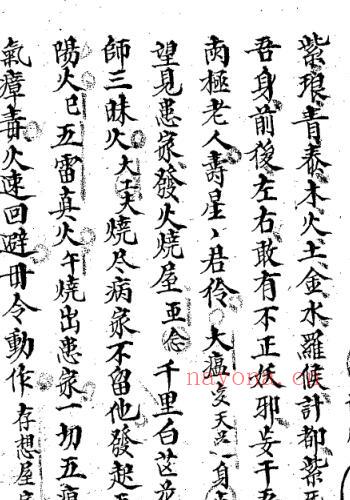 紫琅青泰木火土金水羅睺計都紫
吾身前後左右敢有不正妖邪妄干吾
南極老人壽星丶君伶大瘟天一身
望見患家發火燒屋亟念千里白
師三昧火大工大燒尽病家不留他發起
陽火巳五雷真火午燒出患家一切五瘟
氣瘴毒火速回避毋令動作存想屋
nayona.cn